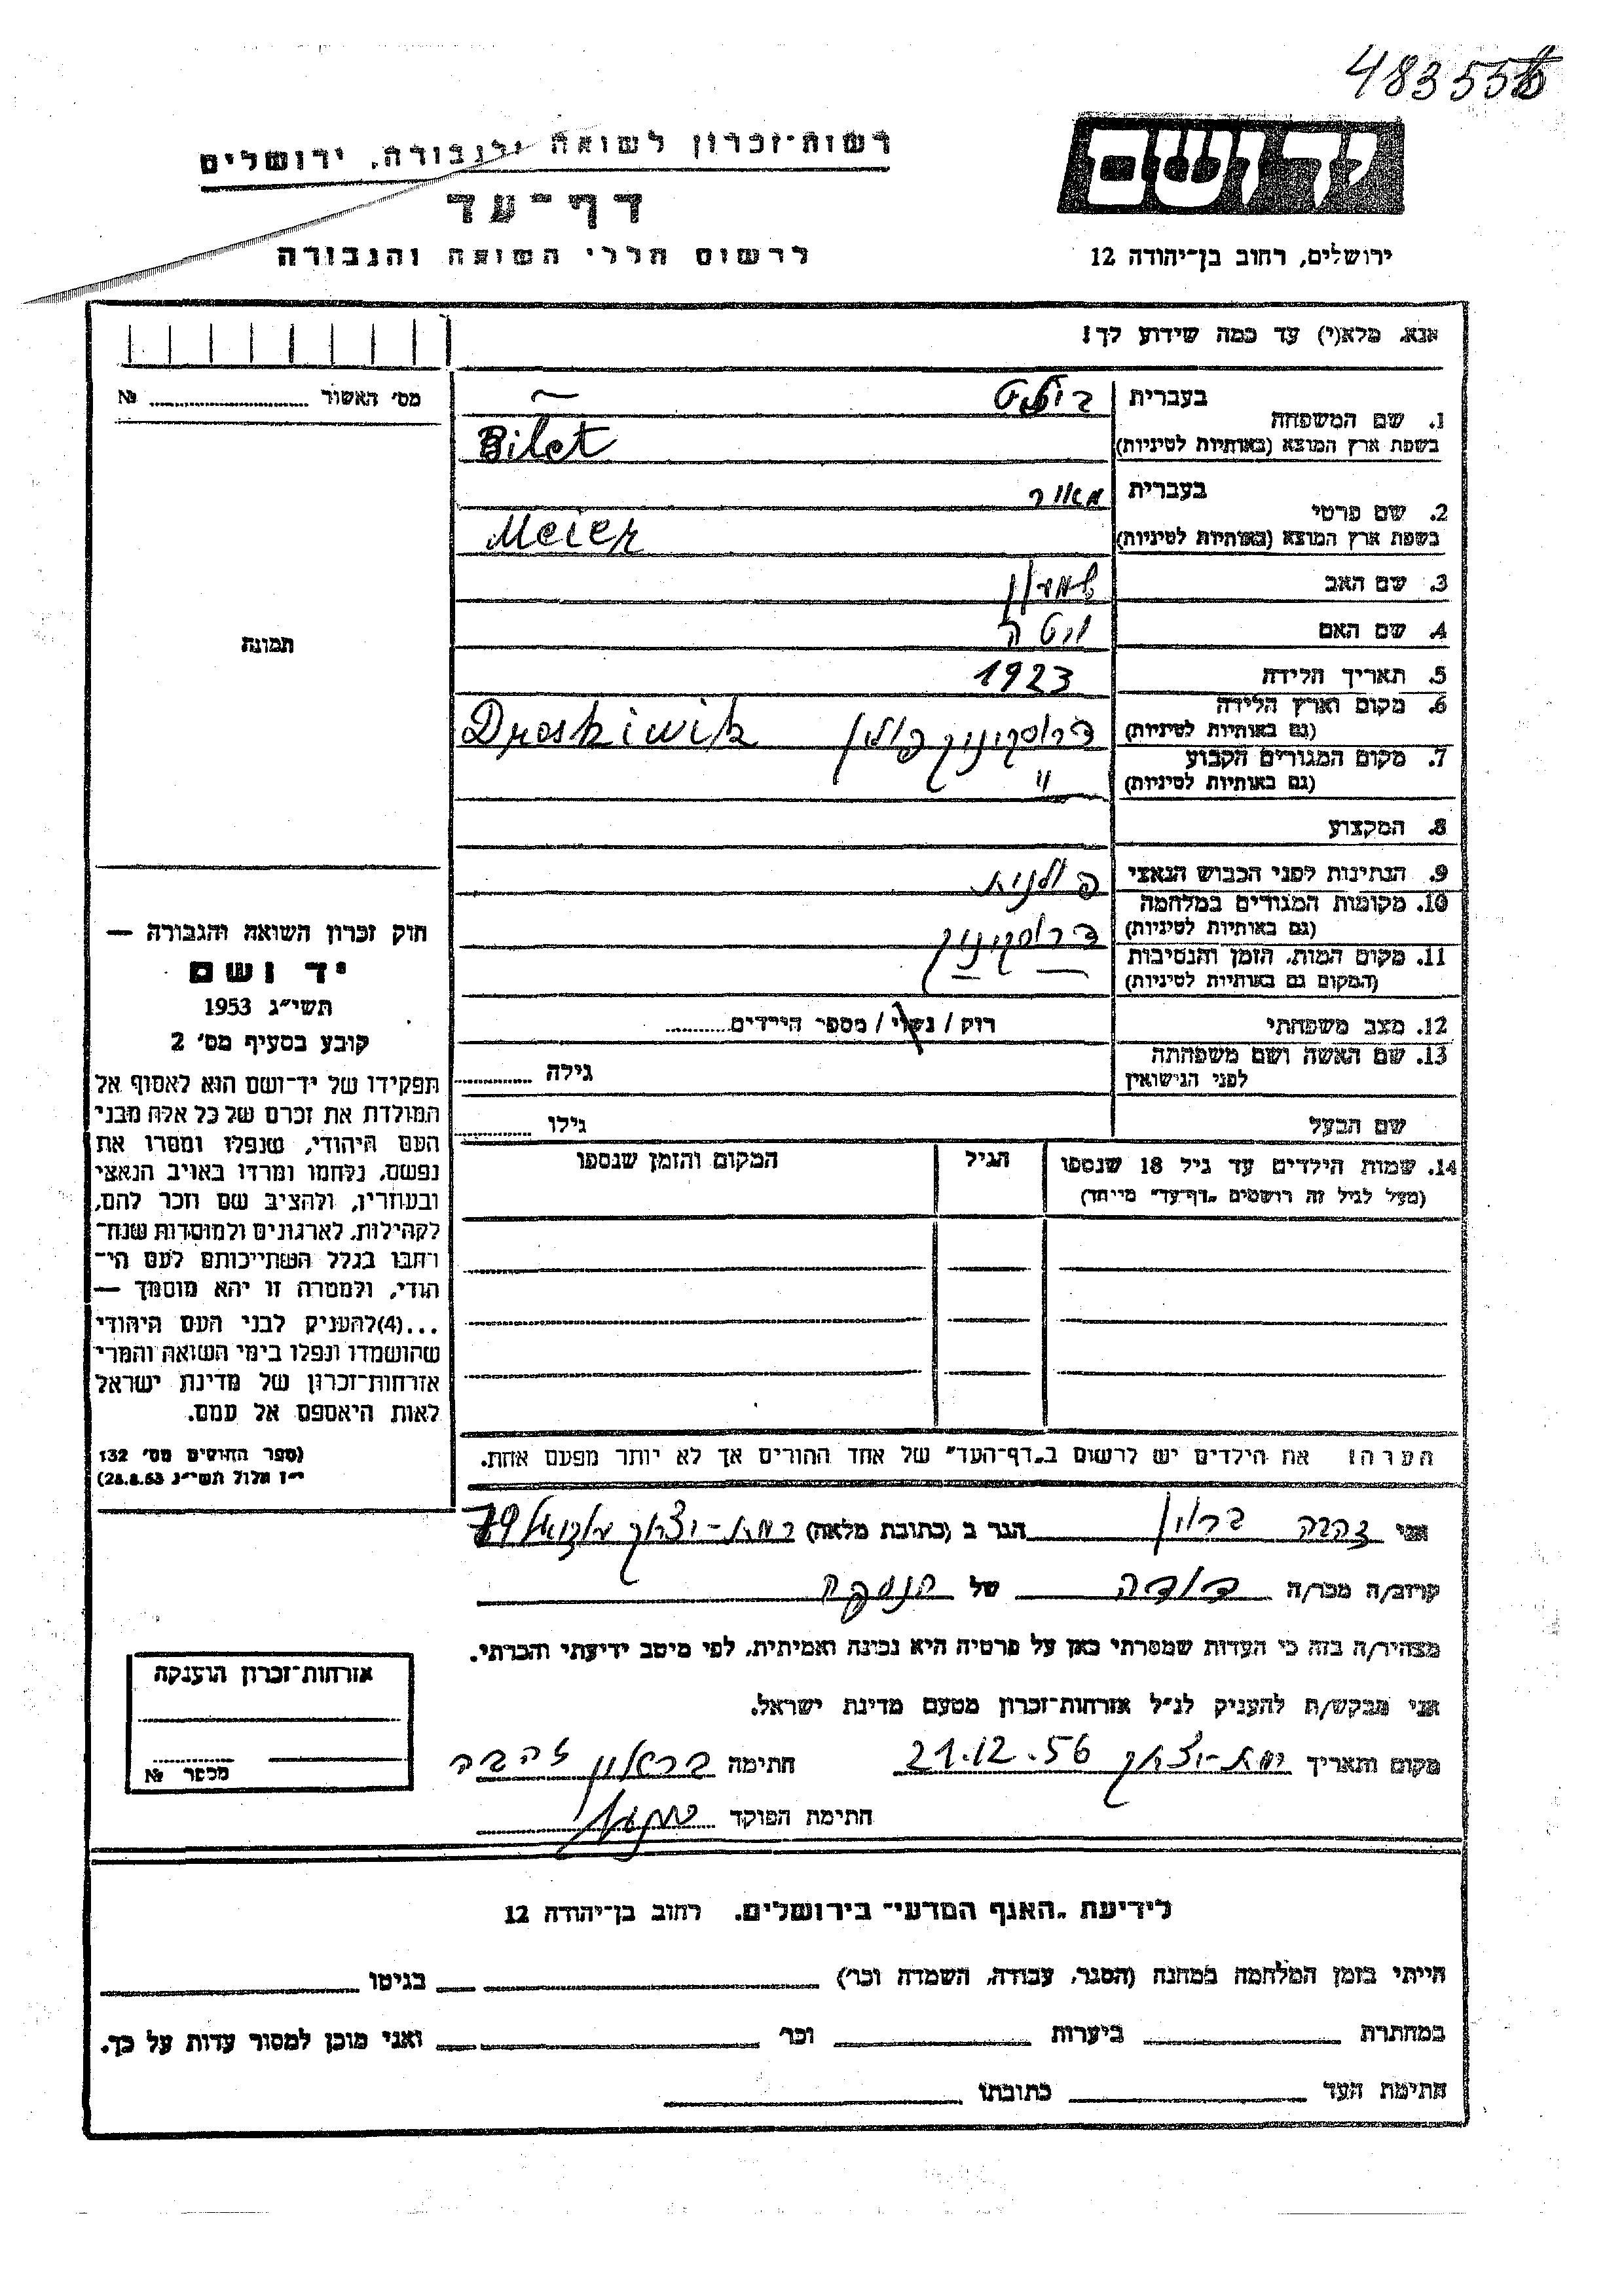 483555
רשות-זכרון לשואה ולגבורה, ירושלים
דף-עד
לרשום חללי השואה והגבורה
יד ושם
ירושלים, רחוב בן-יהודה 12
אנא, מלא(י) עד כמה שידוע לך!
מס' האשור № 
1. שם המשפחה
בעברית בילט
בשפת ארץ המוצא (באותיות לטיניות) Bilet
2. שם פרטי
בעברית מאיר
בשפת ארץ המוצא (באותיות לטיניות) Meier
3. שם האב שמעון
4. שם האם יטה
5. תאריך הלידה 1923
6. מקום וארץ הלידה דרוסקיניק פולין Droskiwik
(גם באותיות לטיניות)
7. מקום המגורים הקבוע "
(גם באותיות לטיניות)
8. המקצוע
9. הנתינות לפני הכבוש הנאצי פולנית
10. מקומות המגורים במלחמה דרוסקיניק
(גם באותיות לטיניות)
11. מקום המות, הזמן והנסיבות
(המקום גם באותיות לטיניות)
12. מצב משפחתי רווק / נשוי / מספר הילדים
13. שם האשה ושם משפחתה
לפני הנישואין
גילה
שם הבעל גילו
14. שמות הילדים עד גיל 18 שנספו הגיל המקום והזמן שנספו
(מעל לגיל זה רושמים "דף-עד" מיוחד)
הערה: את הילדים יש לרשום ב"דף-העד" של אחד ההורים אך לא יותר מפעם אחת.
תמונה
חוק זכרון השואה והגבורה —
יד ושם
תשי"ג 1953
קובע בסעיף מס' 2
תפקידו של יד-ושם הוא לאסוף אל
המולדת את זכרם של כל אלה מבני
העם היהודי, שנפלו ומסרו את
נפשם, נלחמו ומרדו באויב הנאצי
ובעוזריו, ולהציב שם וזכר להם,
לקהילות, לארגונים ולמוסדות שנח-
רבו בגלל השתייכותם לעם הי-
הודי, ולמטרה זו יהא מוסמך —
...(4)להעניק לבני העם היהודי
שהושמדו ונפלו בימי השואה והמרי
אזרחות-זכרון של מדינת ישראל
לאות היאספם אל עמם.
(ספר החוקים מס' 132
י"ז אלול תשי"ג 28.8.53)
אני זהבה ברוין הגר ב (כתובת מלאה) רמת-יצחק
קרוב/ה מכר/ה דודה של הנספה
מצהיר/ה בזה כי העדות שמסרתי כאן על פרטיה היא נכונה ואמיתית, לפי מיטב ידיעתי והכרתי.
אני מבקש/ת להעניק לנ"ל אזרחות-זכרון מטעם מדינת ישראל.
מקום ותאריך רמת-יצחק 21.12.56 חתימה בראון זהבה
חתימת הפוקד
אזרחות-זכרון הוענקה
מספר №
לידיעת "האגף המדעי" בירושלים, רחוב בן-יהודה 12
הייתי בזמן המלחמה במחנה (הסגר, עבודה, השמדה וכו') בגיטו
במחתרת ביערות וכו' ואני מוכן למסור עדות על כך.
חתימת העד כתובתו